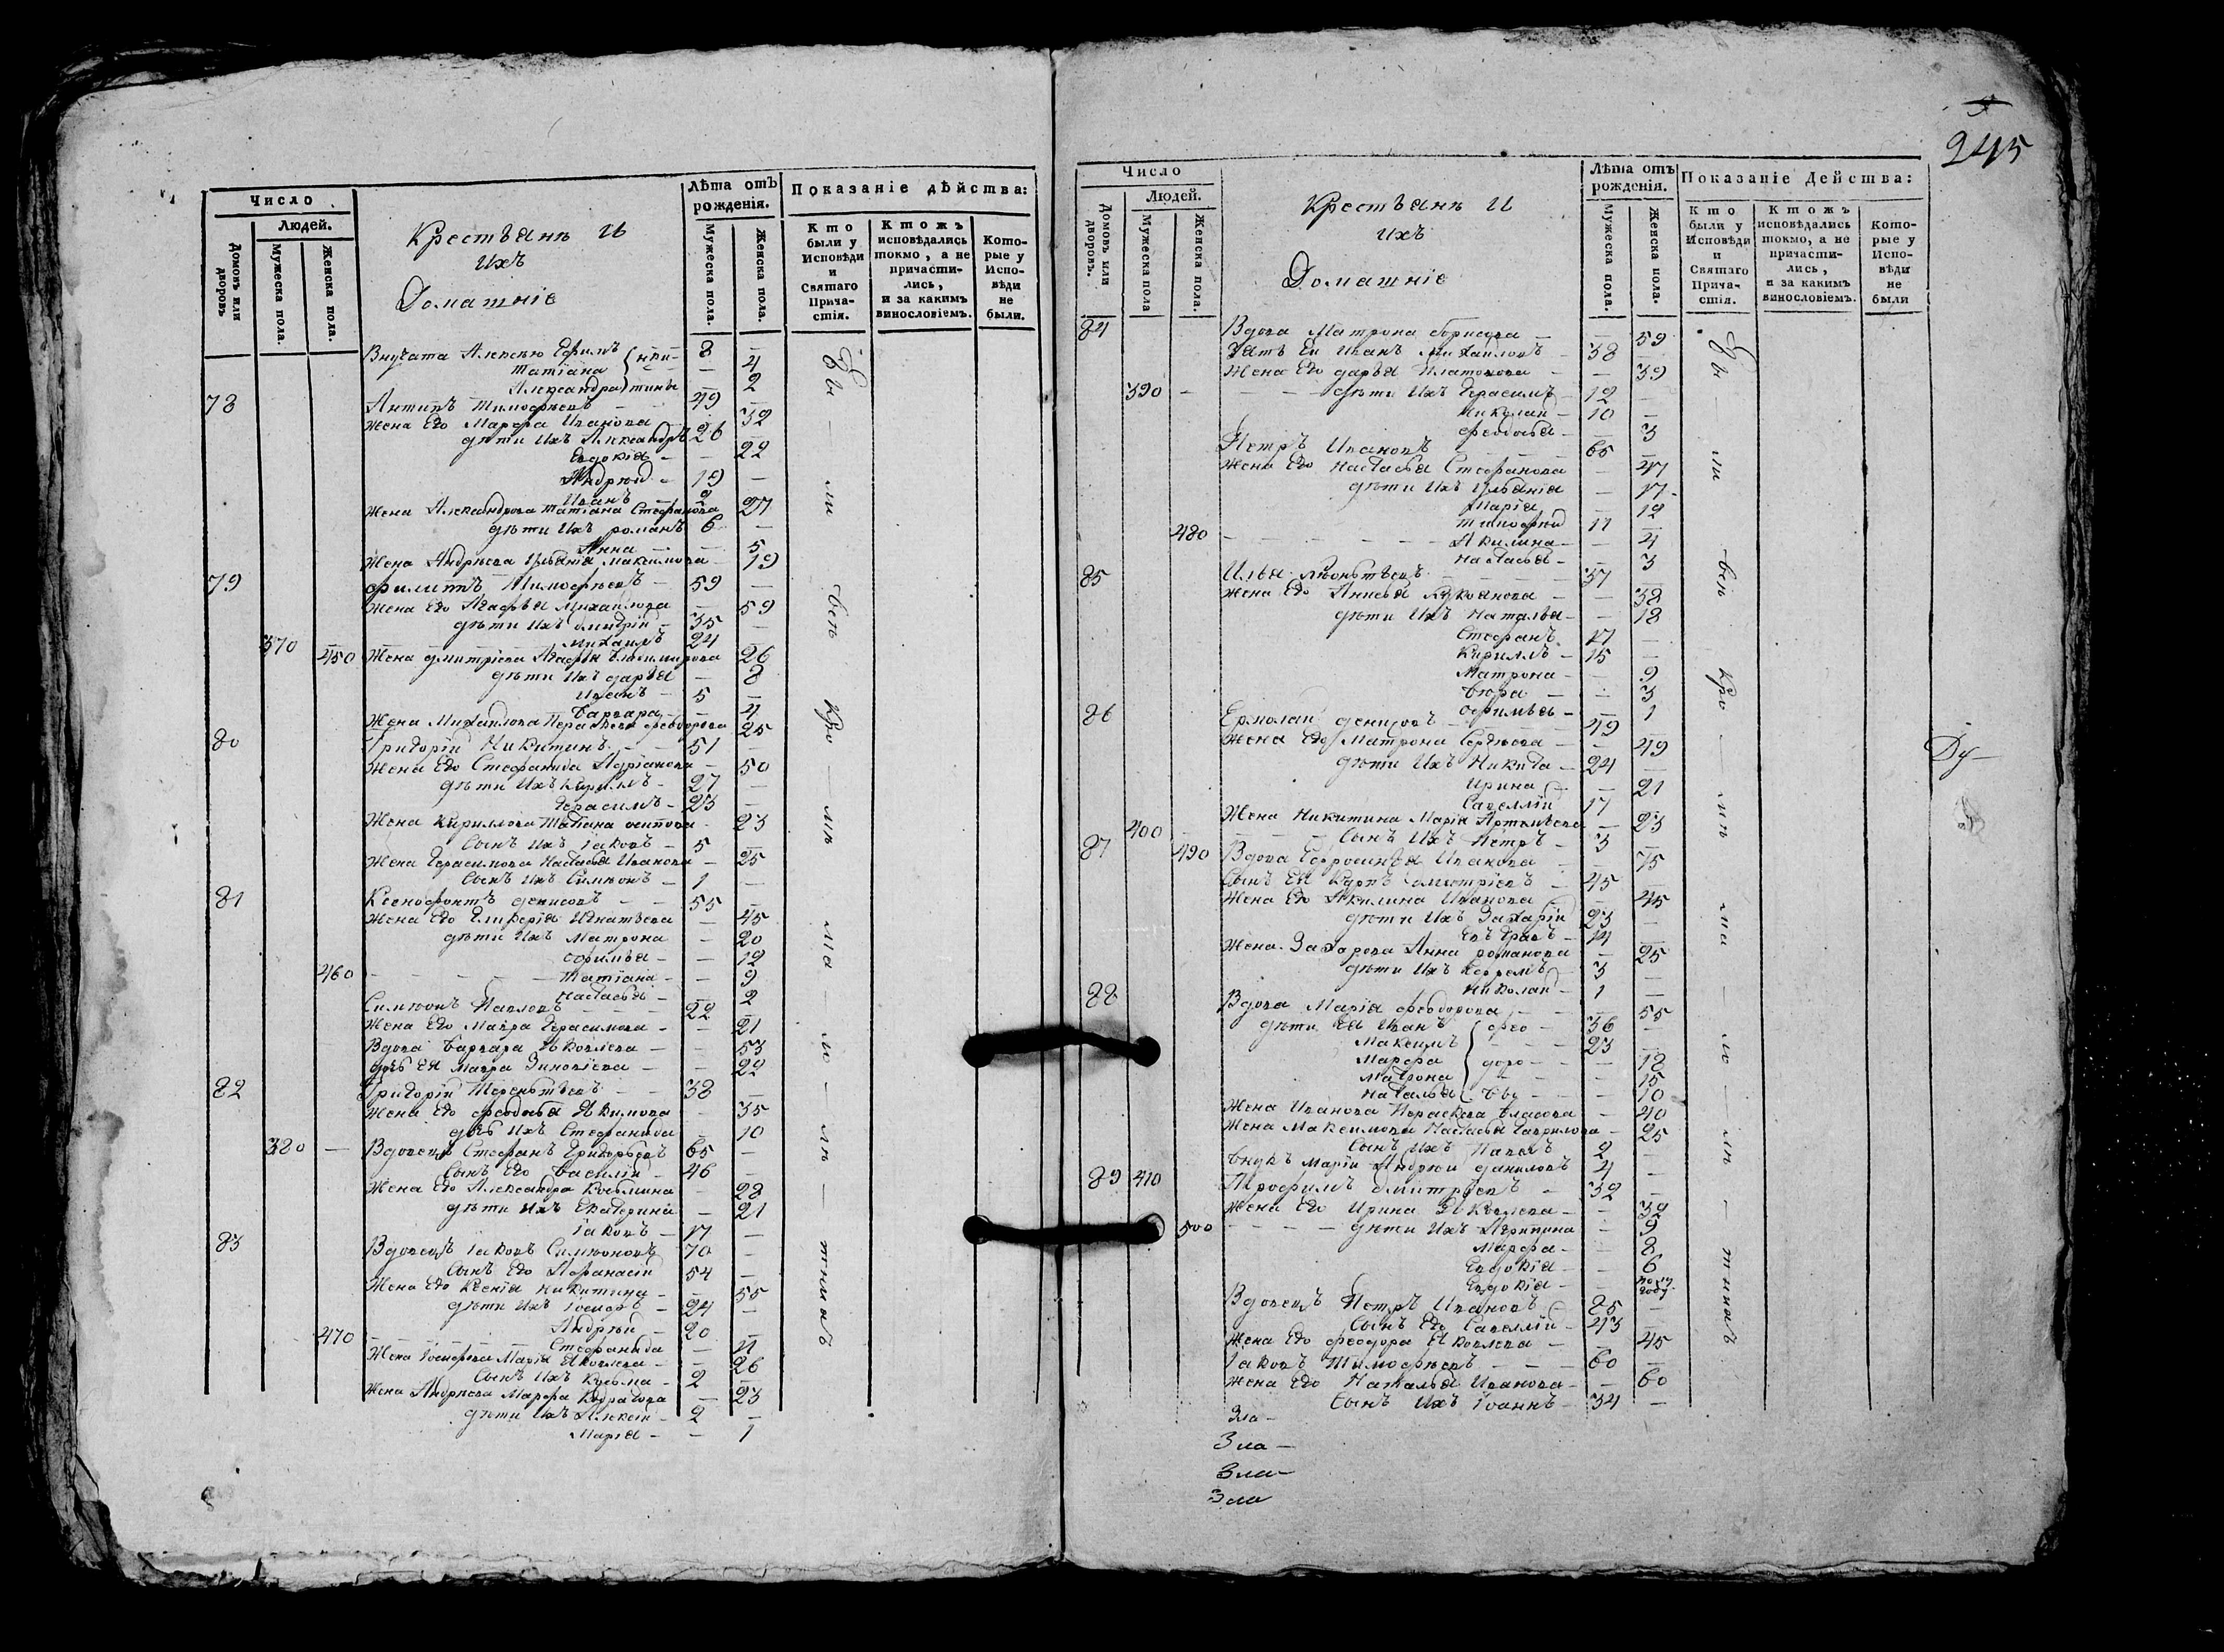 245
Число
Людей.
Домовъ или дворовъ
Мужеска пола.
Женска пола.
Крестьянѣ и
ихъ
Домашніе
Лѣта отъ рожденія.
Мужеска пола.
Женска пола.
Показаніе дѣйства:
Кто были у Исповѣди и Святаго Прича-стія.
Ктожъ исповѣдались токмо, а не причасти-лись, и за какимъ винословіемъ.
Кото-рые у Испо-вѣди не были.
Внучата Алексѣю Ефимъ 8 —
Татіана — 4
Александра — 2
78 Антипъ Тимофѣевъ 49 —
Жена его Марфа Иванова — 32
дѣти ихъ Александръ 26
Евдокія — 22
Андрей 19 —
Иванъ 2
Жена Александрова Татіана Стефанова 27
дѣти ихъ Романъ 6 —
Анна — 5
Жена Андреева Максимова 19
79 Филиппъ Тимофѣевъ 59 —
Жена его Агафья Михайлова — 59
дѣти ихъ Димитрій 35 —
370 Михаилъ 24
450 Жена Дмитріева Агафія Владимирова 26
дѣти ихъ Дарья — 8
Иванъ 5 —
Варвара — 4
Жена Михайлова Параскева Феодорова 25
80 Григорій Никитинъ 51 —
Жена его Стефанида Адріанова — 50
дѣти ихъ Кириллъ 27 —
Герасимъ 23 —
Жена Кириллова Татіана Осипова 23
Сынъ ихъ Іаковъ 5 —
Жена Герасимова Настасья Иванова — 25
Сынъ ихъ Симеонъ 1 —
81 Ксенофонтъ Денисовъ 55 —
Жена его Гликерія Игнатьева — 45
дѣти ихъ Матрона — 20
Офимья — 12
460 Татіана — 9
Настасья — 2
Симеонъ Павловъ 22
Жена его Мавра Герасимова — 21
Вдова Варвара Яковлева — 53
дочь ея Мавра Зиновіева — 22
82 Григорій Терентьевъ 38 —
Жена его Феодосья Якимова — 35
дочь ихъ Стефанида — 10
380 — Вдовецъ Стефанъ Григорьевъ 65 —
Сынъ его Василій 46 —
Жена его Александра Козьмина — 28
дѣти ихъ Екатерина — 21
Іаковъ 17 —
83 Вдовецъ Іаковъ Симеоновъ 70 —
Сынъ его Афанасій 54 —
Жена его Ксенія Никитина — 55
дѣти ихъ Іосифъ 24 —
Андрей 20 —
470 Стефанида —
Жена Іосифова Марія Яковлева — 26
Сынъ ихъ Козьма 2 —
Жена Андреева Марфа — 23
дѣти ихъ Алексій 2 —
Марія — 1
Бы — ли — вси — кро — мѣ — ма — ло — лѣ — тнихъ
Число
Людей.
Домовъ или дворовъ.
Мужеска пола
Женска пола.
Крестьянѣ и
ихъ
Домашніе
Лѣта отъ рожденія.
Мужеска пола.
Женска пола.
Показаніе Действа:
Кто были у Исповѣди и Святаго Прича-стія.
Ктожъ исповѣдались токмо, а не причасти-лись, и за какимъ винословіемъ.
Кото-рые у Испо-вѣди не были
84 Вдова Матрона Борисова — 59
Зять ея Иванъ Михайловъ 38 —
Жена его Дарья Платонова — 39
390 — дѣти ихъ Герасимъ 12 —
Николай 10 —
Феодосья — 3
Петръ Ивановъ 65 —
Жена его Настасья Стефанова — 47
дѣти ихъ — 17
Марія — 12
Тимофей 11 —
480 Акилина — 4
Настасья — 3
85 Илья Леонтьевъ 37 —
Жена его Анисья — 38
дѣти ихъ Наталья — 18
Стефанъ 17 —
Кириллъ 15 —
Матрона — 9
— 3
Офимья — 1
86 Ермолай Денисовъ 49
Жена его Матрона Сергеева — 49
дѣти ихъ Никита 24 —
Ирина — 21
Савеллій 17
Жена Никитина Марія — 23
400 Сынъ ихъ Петръ 3 —
87 490 Вдова Ефросинья Иванова — 75
Сынъ ея Карпъ Дмитріевъ 45 —
Жена его Акилина Иванова — 45
дѣти ихъ Захарій 23 —
Евграфъ 14 —
Жена Захарова Анна Романова — 25
дѣти ихъ Ефремъ 3 —
Николай 1 —
88 Вдова Марія Феодорова — 55
дѣти ея Иванъ 36 —
Максимъ 23 —
Марфа — 18
Матрона — 15
Наталья — 10
Фео-
доро-
вы
Жена Иванова Параскева Власова — 40
Жена Максимова Настасья Гаврилова — 25
Сынъ ихъ Павелъ 2 —
Внукъ Маріи Андрей Даниловъ 4 —
89 410 Трофимъ Дмитріевъ 32 —
Жена его Ирина Яковлева — 32
500 — дѣти ихъ Агрипина — 9
Марфа — 8
Евдокія — 6
Евдокія — полу году
Вдовецъ Петръ Ивановъ 85 —
Сынъ его Савеллій 43 —
Жена его Феодора Яковлева — 45
Іаковъ Тимофѣевъ 60 —
Жена его Наталья Иванова — 60
Сынъ ихъ Іоаннъ 34 —
Бы — ли — вси — кро — мѣ — ма — ло — лѣ — тнихъ
Ду —
Зла —
Зла —
Зла —
Зла